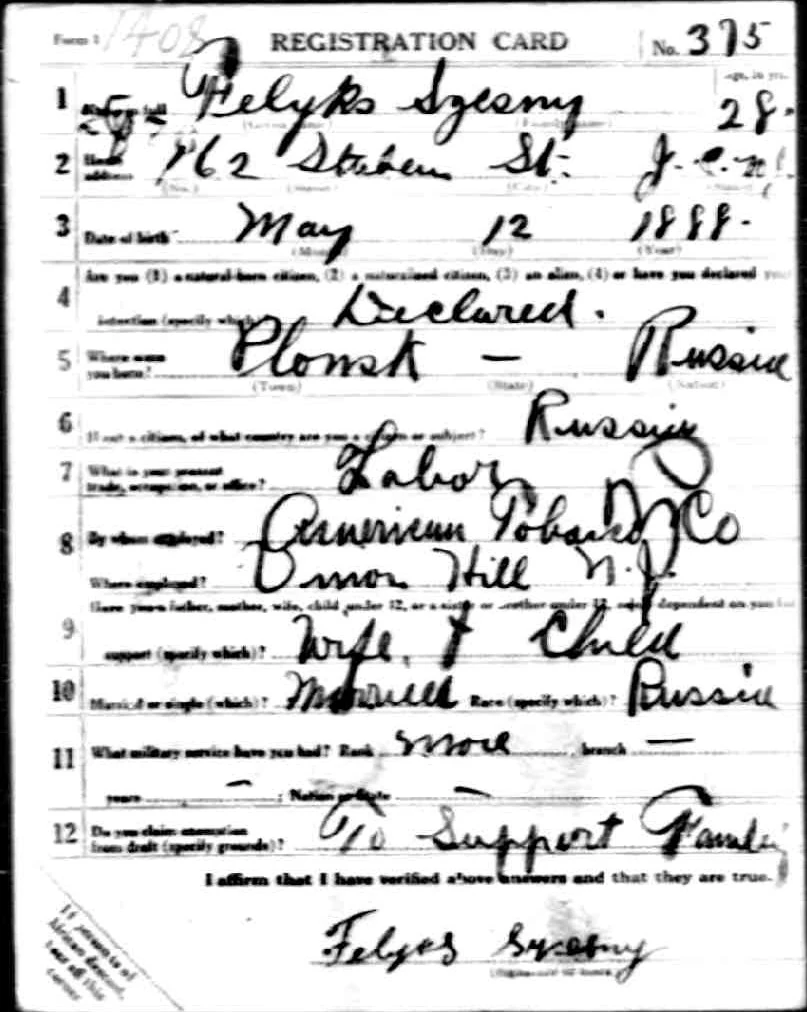 Form 1 1408 REGISTRATION CARD No. 375
1 Name in full Felyks Szesny Age, in yrs. 28.
(Given name) (Family name)
2 Home address 162 Steuben St. J.C. N.J.
(No.) (Street) (City) (State)
3 Date of birth May 12 1888.
(Month) (Day) (Year)
Are you (1) a natural-born citizen, (2) a naturalized citizen, (3) an alien, (4) or have you declared your
4 intention (specify which)? Declared.
5 Where were you born? Plonsk — Russia
(Town) (State) (Nation)
6 If not a citizen, of what country are you a citizen or subject? Russia
7 What is your present trade, occupation, or office? Labor
8 By whom employed? American Tobacco Co
Where employed? Union Hill N.J.
Have you a father, mother, wife, child under 12, or a sister or brother under 12, solely dependent on you for
9 support (specify which)? Wife & Child
10 Married or single (which)? Married Race (specify which)? Russia
11 What military service have you had? Rank none branch —
years — ; Nation or State —
12 Do you claim exemption from draft (specify grounds)? To Support Family
I affirm that I have verified above answers and that they are true.
Felyks Szesny
(Signature or mark)
If person is of
African descent,
tear off this
corner